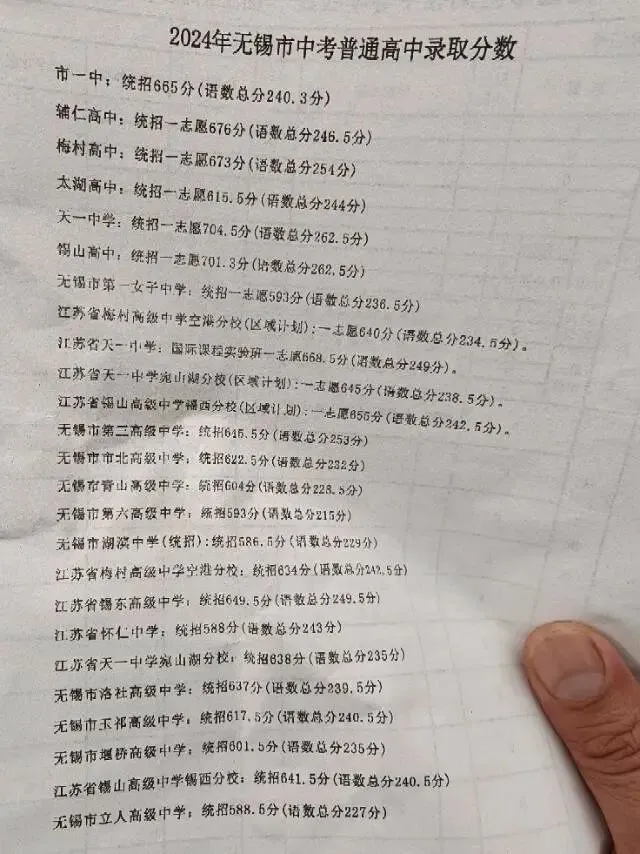 2024年无锡市中考普通高中录取分数
市一中：统招665分(语数总分240.3分)
辅仁高中：统招一志愿676分(语数总分246.5分)
梅村高中：统招一志愿673分(语数总分254分)
太湖高中：统招一志愿615.5分(语数总分244分)
天一中学：统招一志愿704.5分(语数总分262.5分)
锡山高中：统招一志愿701.3分(语数总分262.5分)
无锡市第一女子中学：统招一志愿593分(语数总分236.5分)
江苏省梅村高级中学空港分校(区域计划)：一志愿640分(语数总分234.5分)。
江苏省天一中学：国际课程实验班一志愿668.5分(语数总分249分)。
江苏省天一中学宛山湖分校(区域计划)：一志愿645分(语数总分238.5分)。
江苏省锡山高级中学锡西分校(区域计划)：一志愿655分(语数总分242.5分)。
无锡市第三高级中学：统招645.5分(语数总分253分)
无锡市市北高级中学：统招622.5分(语数总分232分)
无锡市青山高级中学：统招604分(语数总分228.5分)
无锡市第六高级中学：统招593分(语数总分215分)
无锡市湖滨中学(统招)：统招586.5分(语数总分229分)
江苏省梅村高级中学空港分校：统招634分(语数总分242.5分)
江苏省锡东高级中学：统招649.5分(语数总分249.5分)
江苏省怀仁中学：统招588分(语数总分243分)
江苏省天一中学宛山湖分校：统招638分(语数总分235分)
无锡市洛社高级中学：统招637分(语数总分239.5分)
无锡市玉祁高级中学：统招617.5分(语数总分240.5分)
无锡市堰桥高级中学：统招601.5分(语数总分235分)
江苏省锡山高级中学锡西分校：统招641.5分(语数总分240.5分)
无锡市立人高级中学：统招588.5分(语数总分227分)